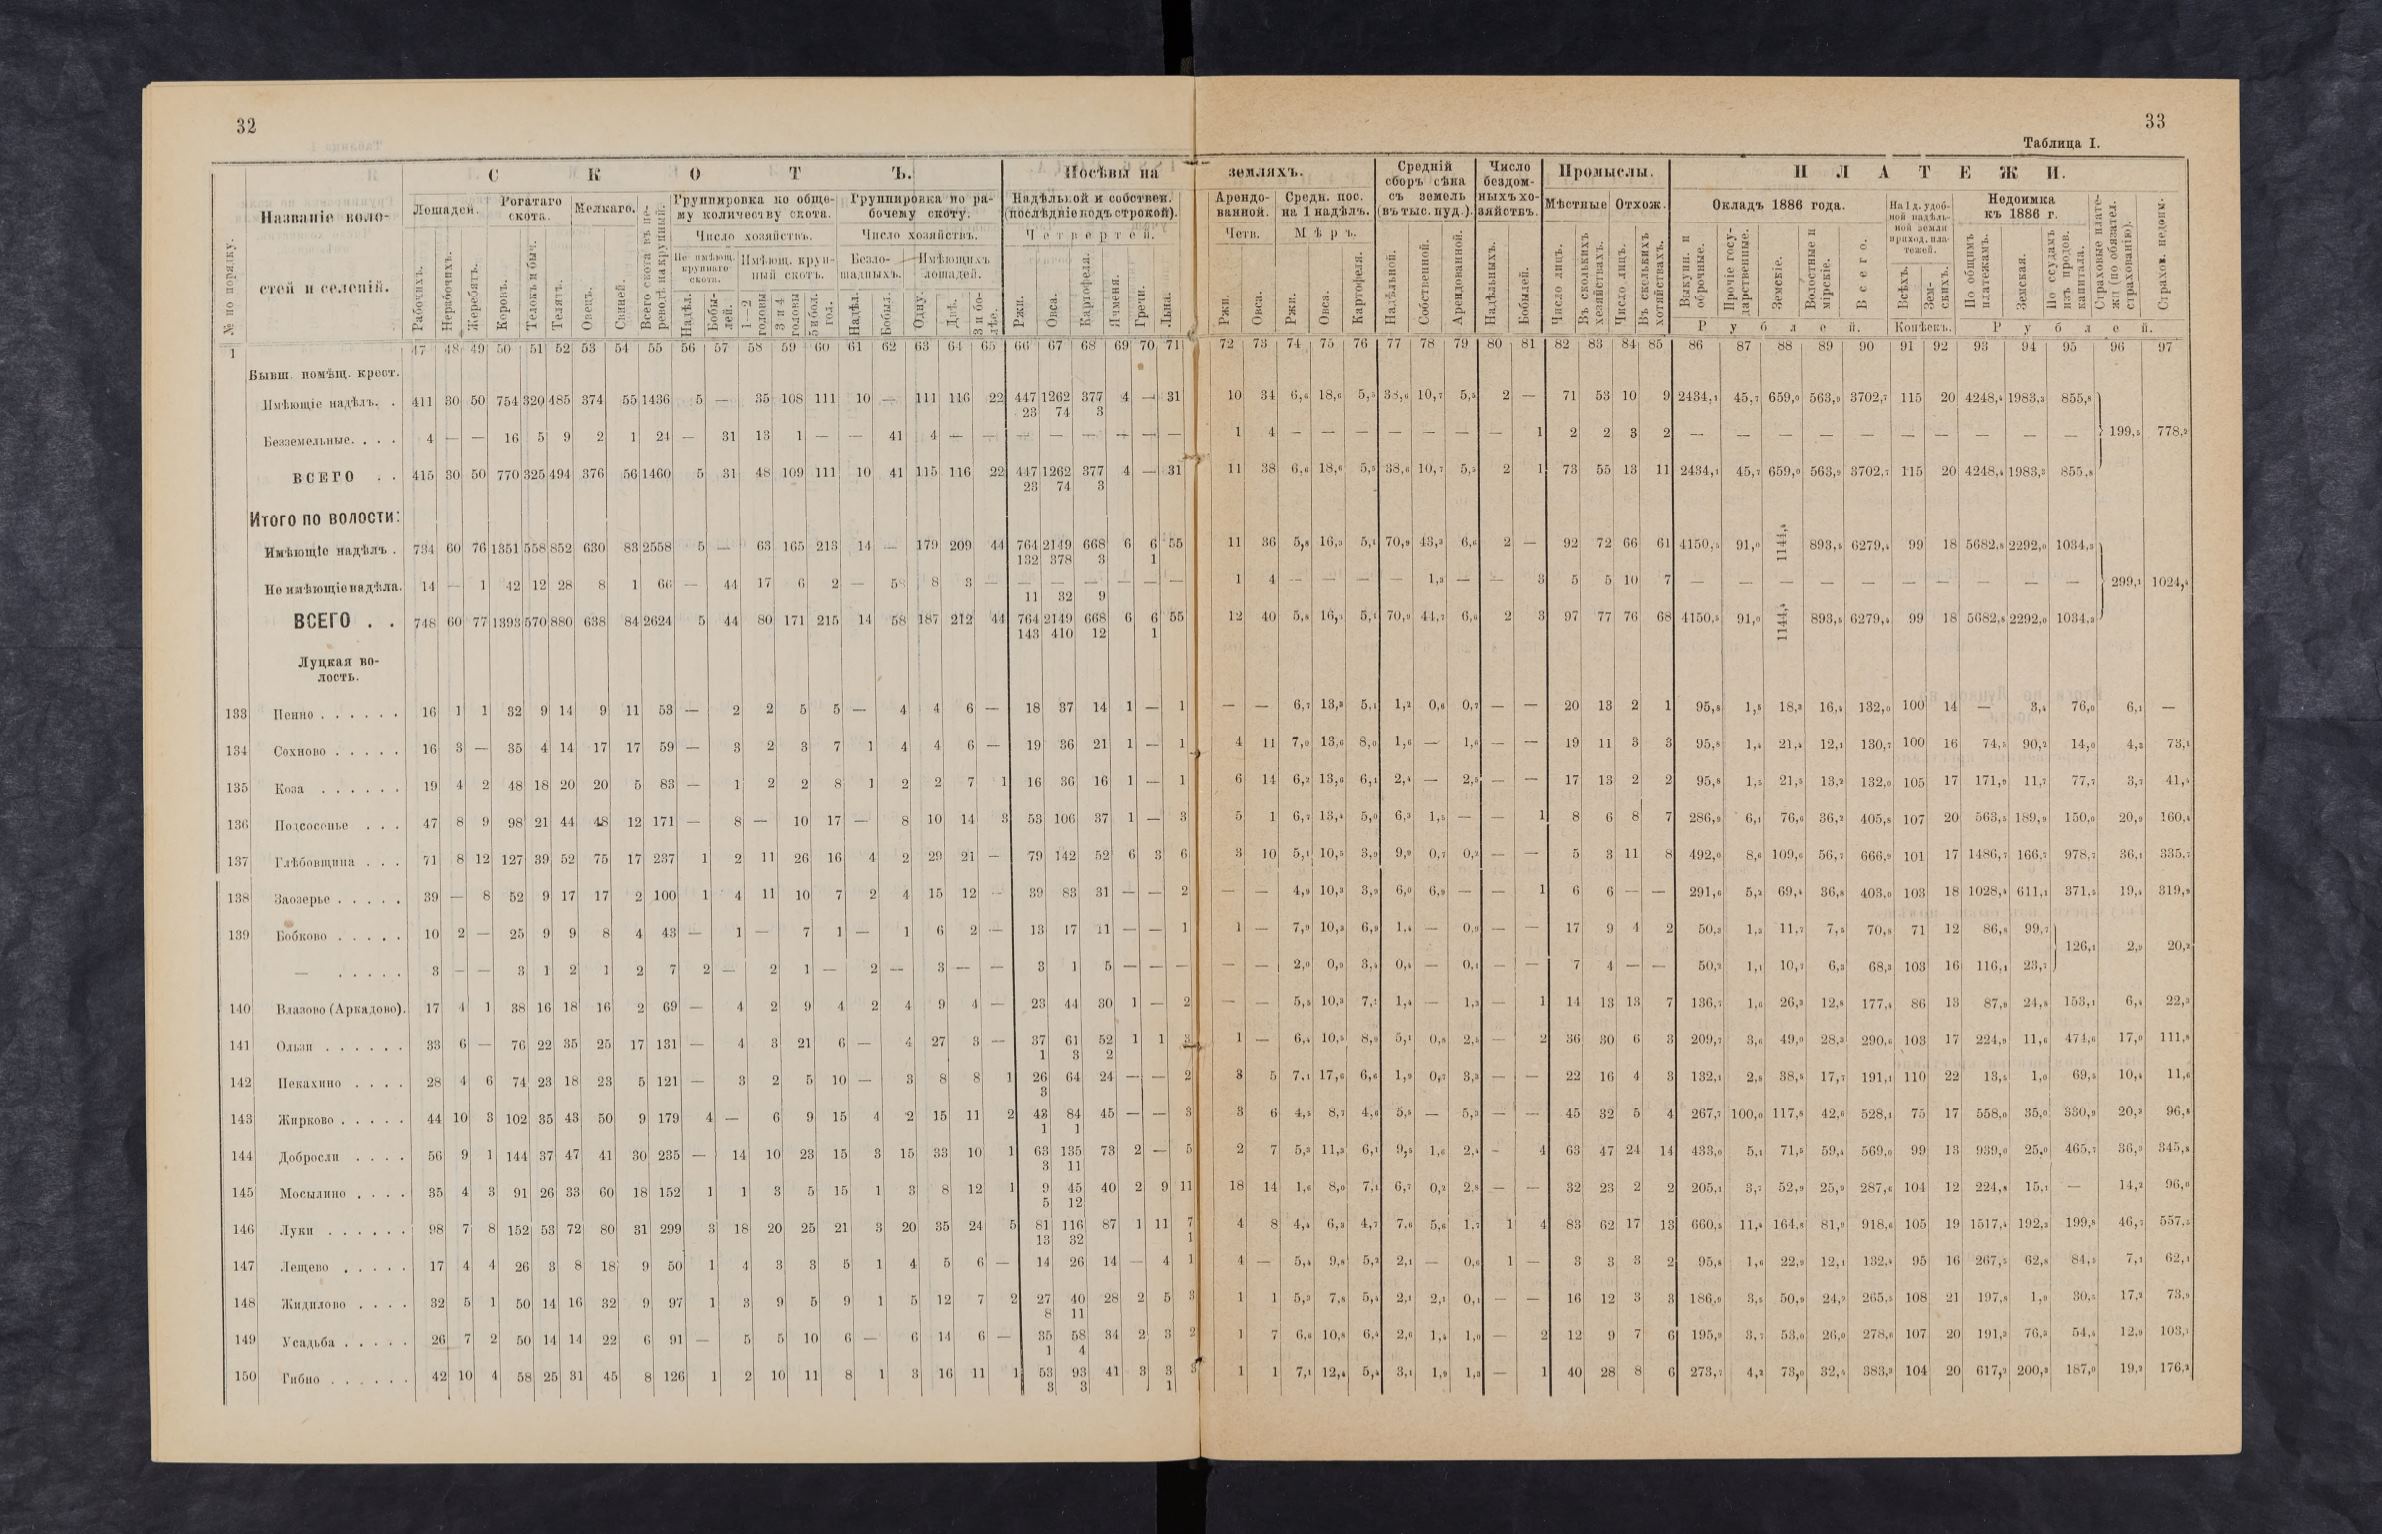 32
33
Таблица I.
№ по порядку.
Названіе воло-
стей и селеній.
С К О Т Ъ.
Посѣвы на
земляхъ.
Средній
сборъ сѣна
съ земель
(въ тыс. пуд.).
Число
бездом-
ныхъ хо-
зяйствъ.
Промыслы.
П Л А Т Е Ж И.
Лошадей.
Рогатаго
скота.
Мелкаго.
Группировка по обще-
му количеству скота.
Группировка по ра-
бочему скоту.
Число хозяйствъ.
Число хозяйствъ.
Надѣльной и собствен.
(послѣдніе подъ строкой).
Четвертей.
Арендо-
ванной.
Четв.
Средн. пос.
на 1 надѣлъ.
Мѣръ.
Мѣстные
Отхож.
Окладъ 1886 года.
На 1 д. удоб-
ной надѣль-
ной земли
приход. пла-
тежей.
Недоимка
къ 1886 г.
Рублей.
Копѣекъ.
Рублей.
1 47 48 49 50 51 52 53 54 55 56 57 58 59 60 61 62 63 64 65 66 67 68 69 70 71 72 73 74 75 76 77 78 79 80 81 82 83 84 85 86 87 88 89 90 91 92 93 94 95 96 97
Бывш. помѣщ. крест.
Имѣющіе надѣлъ. . 411 30 50 754 320 485 374 55 1436 5 — 35 108 111 10 — 111 116 22 447 1262 377 4 — 31 10 34 6,6 18,6 5,5 38,6 10,7 5,5 2 — 71 53 10 9 2434,1 45,7 659,0 563,9 3702,7 115 20 4248,4 1983,3 855,8
23 74 3
Безземельные. . . . 4 — — 16 5 9 2 1 24 — 31 13 1 — — 41 4 — — — — — — — — 1 4 — — — — — — — 1 2 2 3 2 — — — — — — — — — — 199,5 778,2
ВСЕГО . . 415 30 50 770 325 494 376 56 1460 5 31 48 109 111 10 41 115 116 22 447 1262 377 4 — 31 11 38 6,6 18,6 5,5 38,6 10,7 5,5 2 1 73 55 13 11 2434,1 45,7 659,0 563,9 3702,7 115 20 4248,4 1983,3 855,8
23 74 3
Итого по волости:
Имѣющіе надѣлъ . 734 60 76 1351 558 852 630 83 2558 5 — 63 165 213 14 — 179 209 44 764 2149 668 6 6 55 11 36 5,8 16,3 5,1 70,9 43,3 6,6 2 — 92 72 66 61 4150,5 91,0 1144,4 893,5 6279,4 99 18 5682,8 2292,0 1034,3
132 378 3 1
Не имѣющіе надѣла. 14 — 1 42 12 28 8 1 66 — 44 17 6 2 — 58 8 3 — — — — — — — 1 4 — — — — 1,3 — — 3 5 5 10 7 — — — — — — — — — — 299,1 1024,4
11 32 9
ВСЕГО . . 748 60 77 1393 570 880 638 84 2624 5 44 80 171 215 14 58 187 212 44 764 2149 668 6 6 55 12 40 5,8 16,3 5,1 70,9 44,7 6,6 2 3 97 77 76 68 4150,5 91,0 1144,4 893,5 6279,4 99 18 5682,8 2292,0 1034,3
143 410 12 1
Луцкая во-
лость.
133 Пенно . . . . . . 16 1 1 32 9 14 9 11 53 — 2 2 5 5 — 4 4 6 — 18 37 14 1 — 1 — — 6,7 13,3 5,1 1,2 0,6 0,7 — — 20 13 2 1 95,8 1,5 18,3 16,4 132,0 100 14 — 3,4 76,0 6,1 —
134 Сохново . . . . . 16 3 — 35 4 14 17 17 59 — 3 2 3 7 1 4 4 6 — 19 36 21 1 — 1 4 11 7,0 13,6 8,0 1,6 — 1,6 — — 19 11 3 3 95,8 1,4 21,4 12,1 130,7 100 16 74,5 90,2 14,0 4,3 73,1
135 Коза . . . . . . 19 4 2 48 18 20 20 5 83 — 1 2 2 8 1 2 2 7 1 16 36 16 1 — 1 6 14 6,2 13,6 6,1 2,4 — 2,5 — — 17 13 2 2 95,8 1,5 21,5 13,2 132,0 105 17 171,9 11,7 77,7 3,7 41,5
136 Подсосенье . . . 47 8 9 98 21 44 48 12 171 — 8 — 10 17 — 8 10 14 3 53 106 37 1 — 3 5 1 6,7 13,4 5,0 6,3 1,5 — — 1 8 6 8 7 286,9 6,1 76,6 36,2 405,8 107 20 563,5 189,9 150,0 20,9 160,4
137 Глѣбовщина . . . 71 8 12 127 39 52 75 17 237 1 2 11 26 16 4 2 29 21 — 79 142 52 6 3 6 3 10 5,1 10,5 3,9 9,9 0,7 0,2 — — 5 3 11 8 492,0 8,6 109,6 56,7 666,9 101 17 1486,7 166,7 978,7 36,1 335,7
138 Заозерье . . . . . 39 — 8 52 9 17 17 2 100 1 4 11 10 7 2 4 15 12 — 39 83 31 — — 2 — — 4,9 10,3 3,9 6,0 6,9 — — 1 6 6 — — 291,6 5,2 69,4 36,8 403,0 103 18 1028,4 611,1 371,5 19,4 319,9
139 Бобково . . . . . 10 2 — 25 9 9 8 4 43 — 1 — 7 1 — 1 6 2 — 13 17 11 — — 1 1 — 7,9 10,3 6,9 1,4 — 0,9 — — 17 9 4 2 50,3 1,3 11,7 7,5 70,8 71 12 86,8 99,7
126,1 2,9 20,2
— . . . . . 3 — — 3 1 2 1 2 7 2 — 2 1 — 2 — 3 — — 3 1 5 — — — — — 2,0 0,9 3,4 0,4 — 0,1 — — 7 4 — — 50,2 1,1 10,7 6,3 68,3 103 16 116,1 23,7
140 Влазово (Аркадово). 17 4 1 38 16 18 16 2 69 — 4 2 9 4 2 4 9 4 — 23 44 30 1 — 2 — — 5,5 10,3 7,1 1,4 — 1,3 — 1 14 13 13 7 136,7 1,6 26,3 12,8 177,4 86 13 87,9 24,8 153,1 6,4 22,3
141 Ользи . . . . . . 33 6 — 76 22 35 25 17 131 — 4 3 21 6 — 4 27 3 — 37 61 52 1 1 3 1 — 6,4 10,5 8,9 5,1 0,8 2,5 — 2 36 30 6 3 209,7 3,6 49,0 28,3 290,6 103 17 224,9 11,6 474,6 17,0 111,8
1 3 2
142 Пекахино . . . . 28 4 6 74 23 18 23 5 121 — 3 2 5 10 — 3 8 8 1 26 64 24 — — 2 3 5 7,1 17,6 6,6 1,9 0,7 3,3 — — 22 16 4 3 132,1 2,8 38,5 17,7 191,1 110 22 13,5 1,0 69,5 10,4 11,6
3
143 Жирково . . . . . 44 10 3 102 35 43 50 9 179 4 — 6 9 15 4 2 15 11 2 43 84 45 — — 3 3 6 4,5 8,7 4,6 5,5 — 5,3 — — 45 32 5 4 267,7 100,0 117,8 42,6 528,1 75 17 558,0 35,0 330,9 20,3 96,8
1 1
144 Добросли . . . . 56 9 1 144 37 47 41 30 235 — 14 10 23 15 3 15 33 10 1 63 135 73 2 — 5 2 7 5,3 11,3 6,1 9,5 1,6 2,4 - 4 63 47 24 14 433,0 5,1 71,5 59,4 569,0 99 13 939,0 25,0 465,7 36,3 345,8
3 11
145 Мосылино . . . . 35 4 3 91 26 33 60 18 152 1 1 3 5 15 1 3 8 12 1 9 45 40 2 9 11 18 14 1,6 8,0 7,1 6,7 0,2 2,8 — — 32 23 2 2 205,1 3,7 52,9 25,9 287,6 104 12 224,8 15,1 — 14,2 96,0
5 12
146 Луки . . . . . . 98 7 8 152 53 72 80 31 299 3 18 20 25 21 3 20 35 24 5 81 116 87 1 11 7 4 8 4,4 6,3 4,7 7,6 5,6 1,7 1 4 83 62 17 13 660,5 11,4 164,8 81,9 918,6 105 19 1517,4 192,3 199,8 46,7 557,5
13 32 1
147 Лещево . . . . . 17 4 4 26 3 8 18 9 50 1 4 3 3 5 1 4 5 6 — 14 26 14 — 4 1 4 — 5,4 9,8 5,2 2,1 — 0,6 1 — 3 3 3 2 95,8 1,6 22,9 12,1 132,4 95 16 267,5 62,8 84,5 7,1 62,1
148 Жидилово . . . . 32 5 1 50 14 16 32 9 97 1 3 9 5 9 1 5 12 7 2 27 40 28 2 5 3 1 1 5,3 7,8 5,4 2,1 2,1 0,1 — — 16 12 3 3 186,9 3,5 50,9 24,2 265,5 108 21 197,8 1,9 30,5 17,2 73,9
8 11
149 Усадьба . . . . . 26 7 2 50 14 14 22 6 91 — 5 5 10 6 — 6 14 6 — 35 58 34 2 3 2 1 7 6,6 10,8 6,4 2,6 1,4 1,0 — 2 12 9 7 6 195,9 3,7 53,0 26,0 278,6 107 20 191,3 76,3 54,4 12,9 103,1
1 4
150 Гибно . . . . . . 42 10 4 58 25 31 45 8 126 1 2 10 11 8 1 3 16 11 1 53 93 41 3 3 3 1 1 7,1 12,4 5,4 3,1 1,9 1,3 — 1 40 28 8 6 273,7 4,2 73,0 32,4 383,3 104 20 617,2 200,3 187,0 19,2 176,3
3 3 1